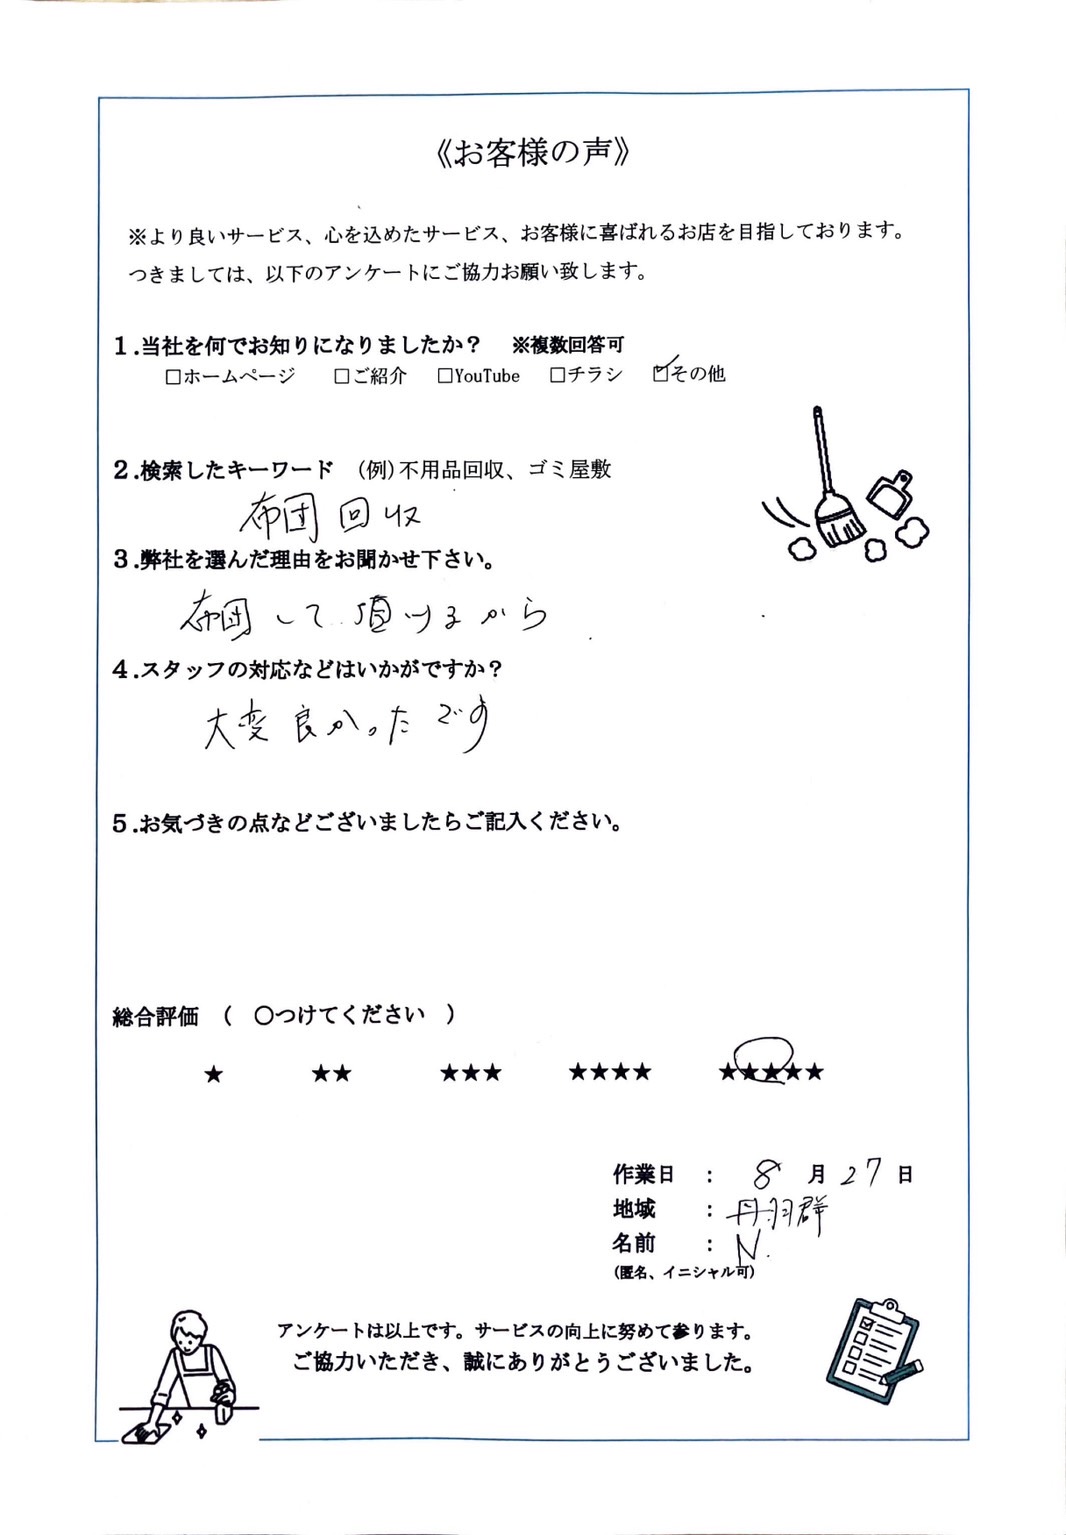 《お客様の声》
※より良いサービス、心を込めたサービス、お客様に喜ばれるお店を目指しております。
つきましては、以下のアンケートにご協力お願い致します。
1.当社を何でお知りになりましたか？ ※複数回答可
□ホームページ □ご紹介 □YouTube □チラシ ☑その他
2.検索したキーワード (例)不用品回収、ゴミ屋敷
布団 回収
3.弊社を選んだ理由をお聞かせ下さい。
布団 して 頂けるから
4.スタッフの対応などはいかがですか？
大変良かったです
5.お気づきの点などございましたらご記入ください。
総合評価 ( 〇つけてください )
★ ★★ ★★★ ★★★★ ★★★★★
作業日 : 8 月 27 日
地域 : 丹羽群
名前 : N.
(匿名、イニシャル可)
アンケートは以上です。サービスの向上に努めて参ります。
ご協力いただき、誠にありがとうございました。